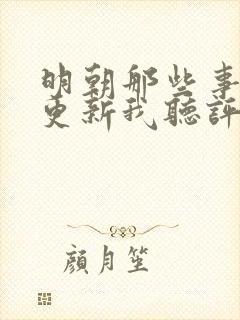 明朝那些事
更新我聽評
顏月笙